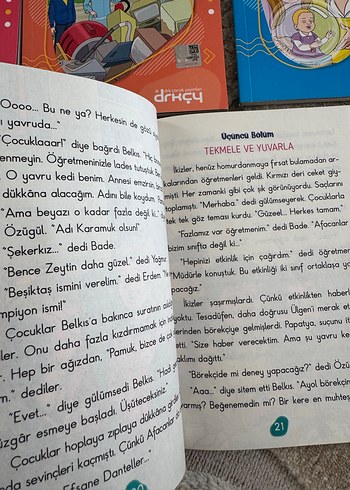 drkçy
Oooo... Bu ne ya? Herkesin de gözü
yavruda..."
"Çocuklaaar!" diye bağırdı Belkıs. "Hiç
enmeyin. Öğretmeninizle lades tutuştuk. Be
O yavru kedi benim. Annesi emzirsin,
dükkâna alacağım. Adını bile koydum.
"Ama beyazı o kadar fazla değil ki."
Özügül. "Adı Karamuk olsun!"
"Şekerkız..." dedi Bade.
"Bence Zeytin daha güzel." dedi Yağmur.
"Beşiktaş ismini verelim." dedi Erdem. "Ne
mpiyon ismi!"
Çocuklar Belkıs'a bakınca suratının asıldığ
ler. Onu daha fazla kızdırmamak için
Hep bir ağızdan, "Pamuk, bizce de
dediler.
"Evet..." diye gülümsedi Belkıs. "Hadi
üzgâr esmeye başladı. Üşüteceksiniz."
Çocuklar hoplaya zıplaya dükkâna girdiler
nda sevinçleri kaçmıştı. Çünkü Afacanlar
Efsane Danteller..."
Üçüncü Bölüm
TEKMELE VE YUVARLA
İkizler, henüz homurdanmaya fırsat bulamadan ar-
kalarından öğretmenleri geldi. Kırmızı deri ceket giy-
mişti. Her zamanki gibi çok şık görünüyordu. Saçlarını
toplamıştı. "Merhaba." dedi gülümseyerek. Çocuklarla
tek tek göz teması kurdu. "Güzeel... Herkes tamam."
"Fazlamız var öğretmenim." dedi Bade. "Afacanlar
bizim sınıfta değil ki..."
"Hepinizi etkinlik için çağırdım." dedi öğretmen
"Müdürle konuştuk. Bu etkinliği iki sınıf ortaklaşa ya
pacağız."
İkizler şaşırmışlardı. Çünkü etkinlikten haberl
yoktu. Tesadüfen, daha doğrusu Ülgen'i merak et
lerinden börekçiye gelmişlerdi. Papatya, suçunu it
etti. "Size haber verecektim. Ama şu yavru ke
aklımı dağıttı."
"Börekçide mi deney yapacağız?" dedi Özü
"Aaa..." diye sitem etti Belkıs. "Ayol börekçin
varmış? Beğenemedin mi? Bir kere en muhteş
21